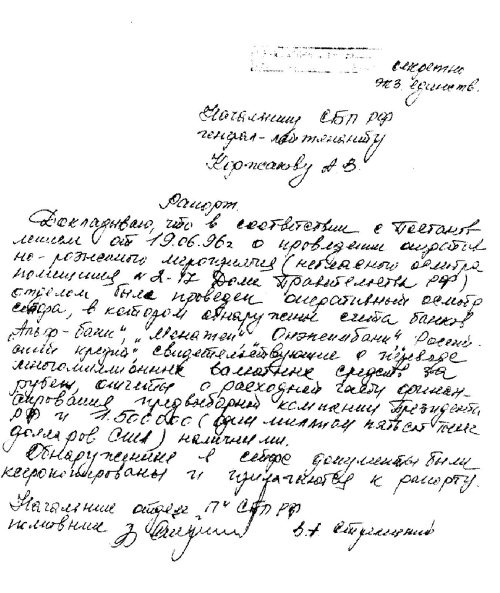 секретно
экз. единств.
Начальнику СБП РФ
генерал-лейтенанту
Коржакову А.В.
Рапорт
Докладываю, что в соответствии с Постанов
лением от 19.06.96г о проведении оператив
но-розыскного мероприятия (негласного осмотра
помещения № 2-17 Дома Правительства РФ)
отделом был проведен оперативный осмотр
сейфа, в котором обнаружены счета банков
"Альфа-банк", "Менатеп", "Онэксимбанк", "Россий-
ский кредит" свидетельствующие о переводе
многомиллионных валютных средств за
рубеж, отчеты о расходной части финан-
сирования предвыборной компании Президента
РФ и 1.500 000 (один миллион пятьсот тысяч
долларов США) наличными.
Обнаруженные в сейфе документы были
ксерокопированы и прилагаются к рапорту.
Начальник отдела "П" СБП РФ
полковник В.А. Стрелецкий